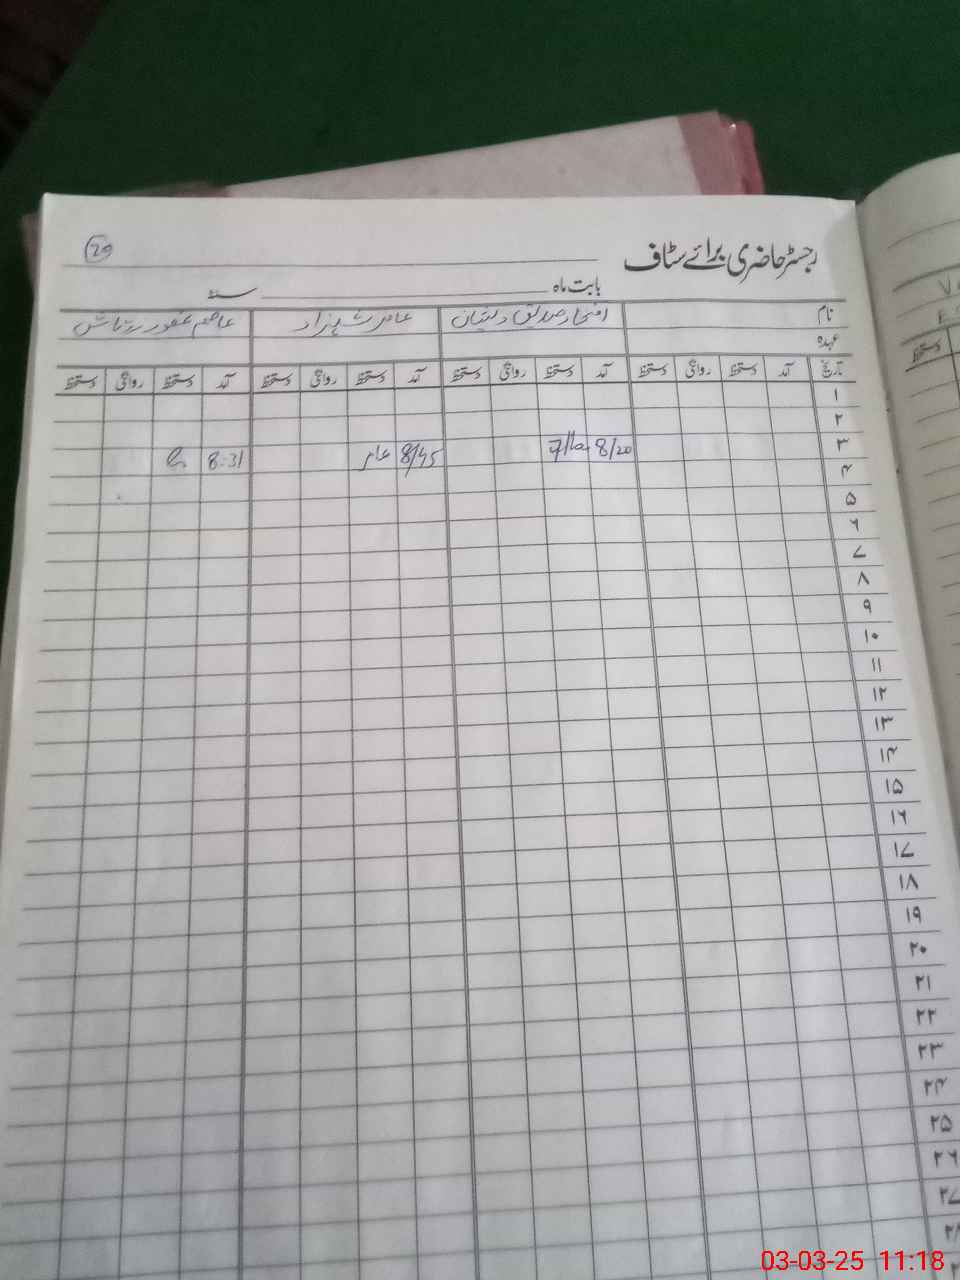 29
رجسٹر حاضری برائے سٹاف
بابت ماہ سنہ
نام عامر شہزاد عاصم غفور
عہدہ
تاریخ آمد دستخط روانگی دستخط آمد دستخط روانگی دستخط آمد دستخط روانگی دستخط آمد دستخط روانگی دستخط
۱
۲
۳ 8/20 8/45 عامر 8:31
۴
۵
۶
۷
۸
۹
۱۰
۱۱
۱۲
۱۳
۱۴
۱۵
۱۶
۱۷
۱۸
۱۹
۲۰
۲۱
۲۲
۲۳
۲۴
۲۵
۲۶
۲۷
۲۸
03-03-25 11:18